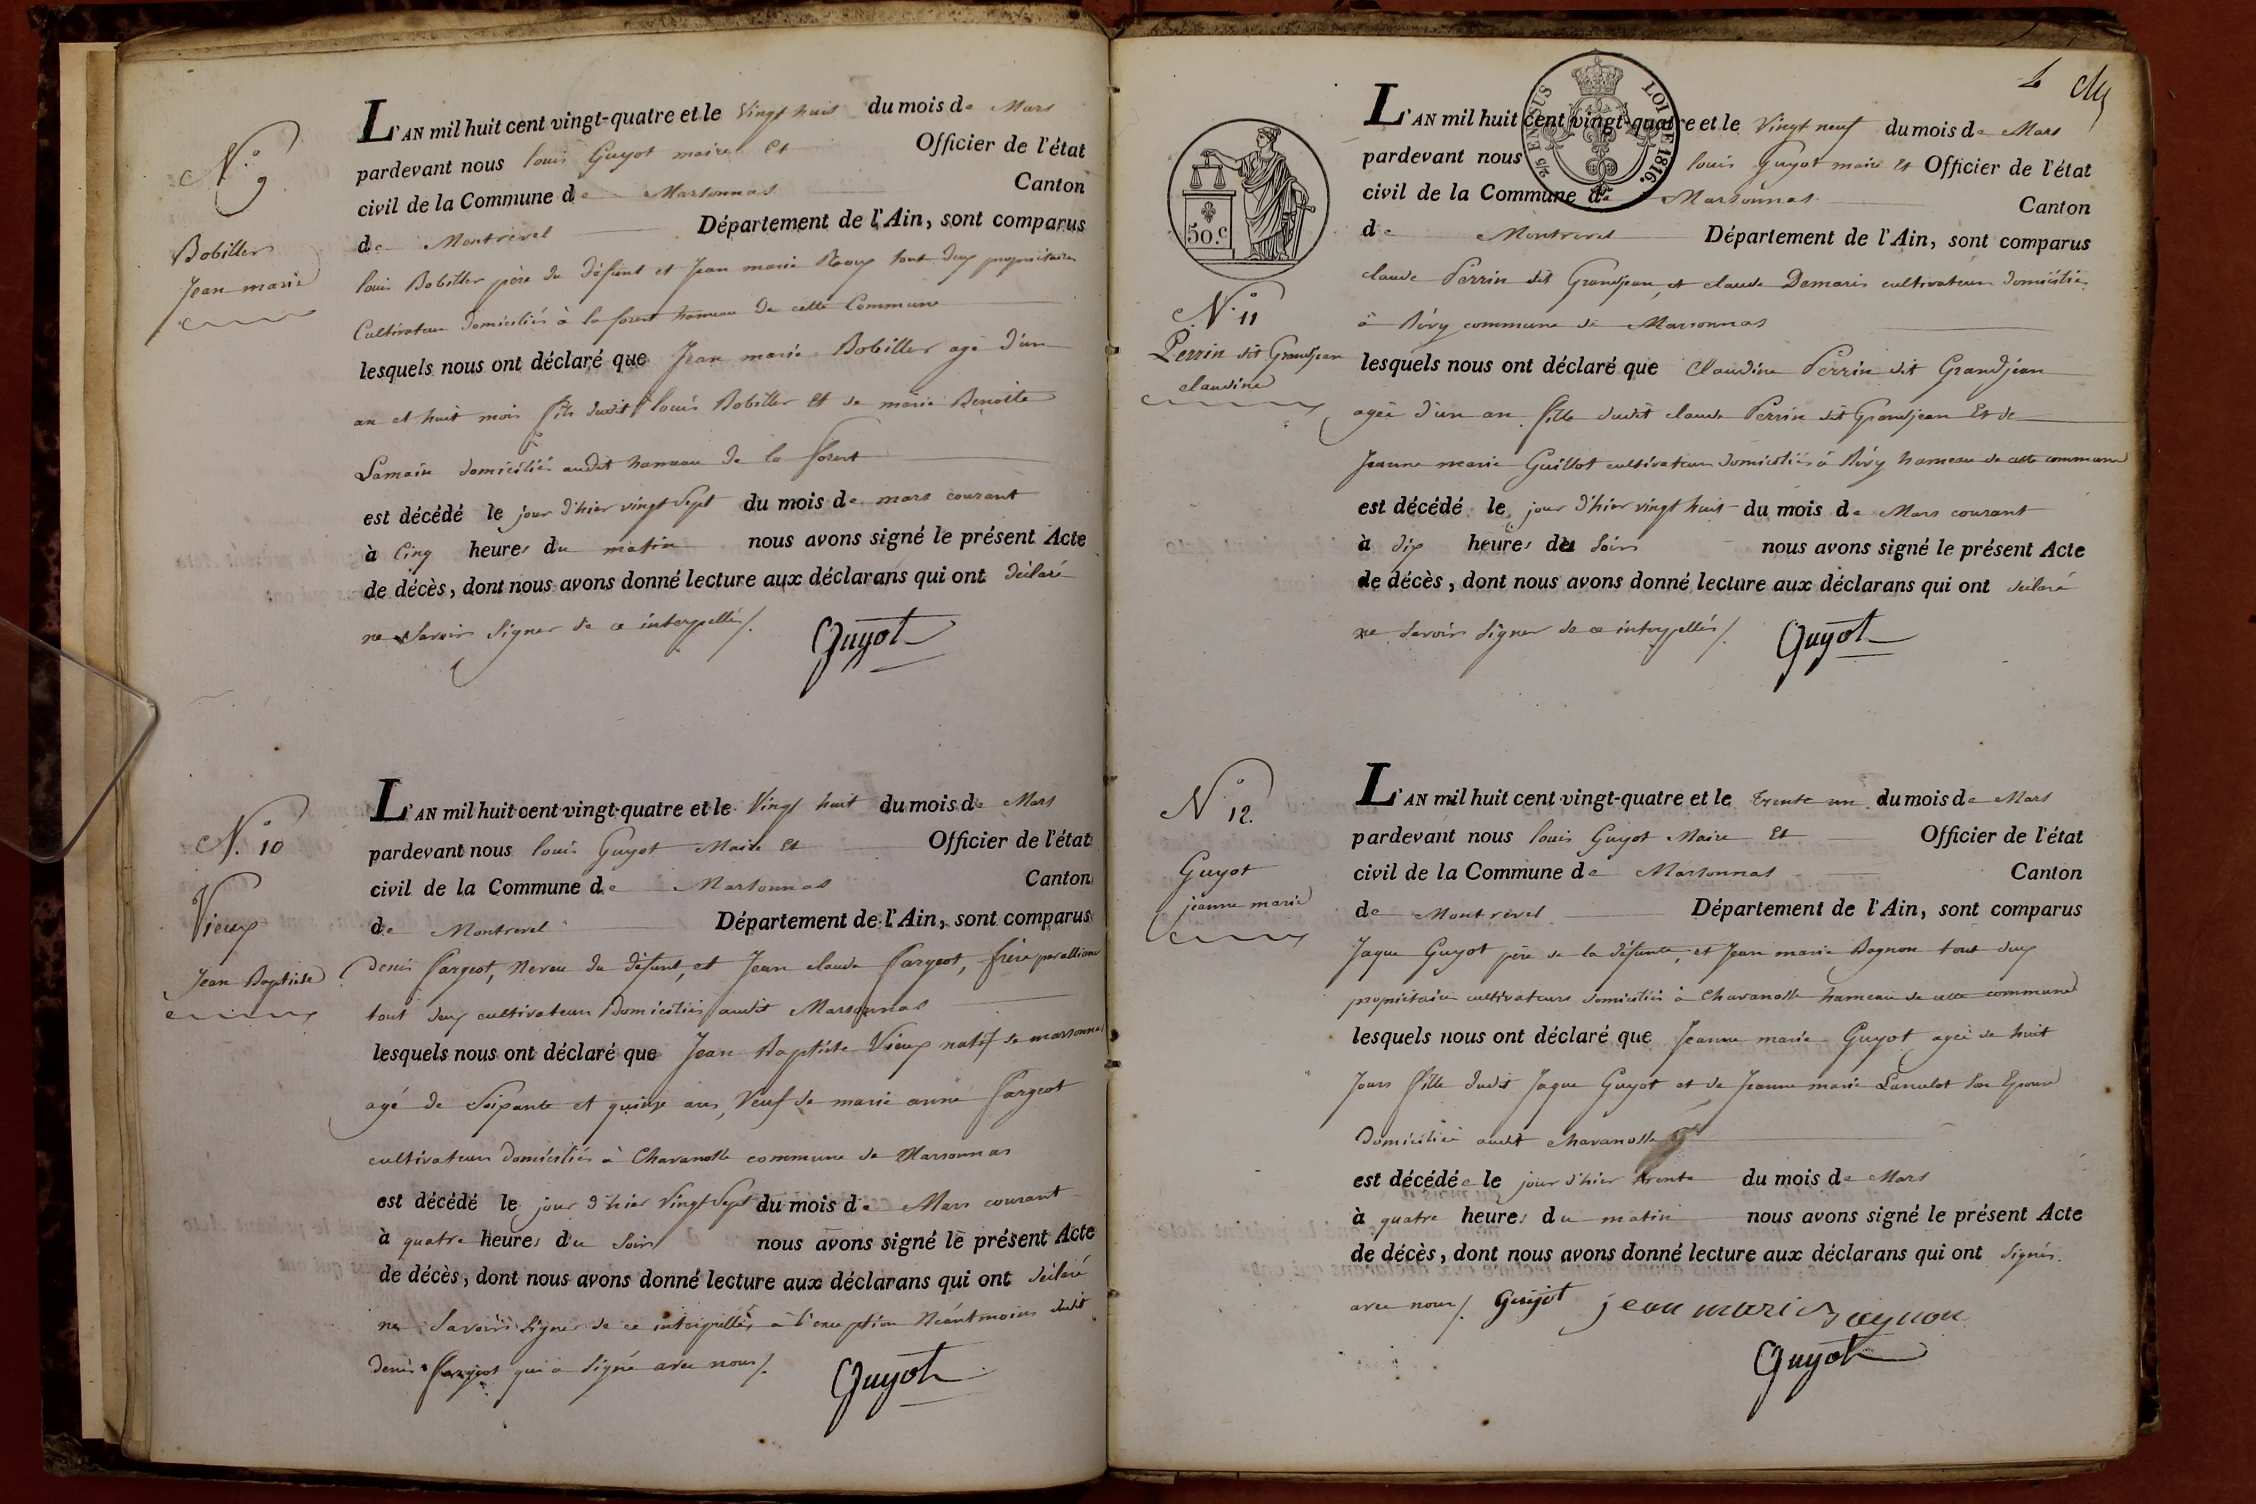 N.° 9
Bobiller
Jean marie
L'AN mil huit cent vingt-quatre et le Vingt huit du mois de Mars
pardevant nous louis Guyot maire et Officier de l'état
civil de la Commune de Marsonnas Canton
de Montrevel Département de l'Ain, sont comparus
louis Bobiller père du défunt et Jean marie tout deux propriétaires
Cultivateurs domiciliés à la forest hameau de cette Commune
lesquels nous ont déclaré que Jean marie Bobiller agé d'un
an et huit mois fils dudit louis Bobiller et de marie Benoite
domiciliés audit hameau de la forest
est décédé le jour d'hier vingt Sept du mois de mars courant
à Cinq heures du matin nous avons signé le présent Acte
de décès, dont nous avons donné lecture aux déclarans qui ont déclaré
ne Savoir Signer de ce interpellés/.
Guyot
N.° 10
Vieux
Jean Baptiste
L'AN mil huit cent vingt-quatre et le Vingt huit du mois de Mars
pardevant nous louis Guyot Maire et Officier de l'état
civil de la Commune de Marsonnas Canton
de Montrevel Département de l'Ain, sont comparus
denis Pargeot, Neveu du défunt, et Jean claude Pargeot, frère par alliance
tout deux cultivateurs Domiciliés audit Marsonnas
lesquels nous ont déclaré que Jean Baptiste Vieux natif de marsonnas
agé de Soixante et quinze ans, Veuf de marie anne Pargeot
cultivateurs domiciliés à Chavanolle commune de Marsonnas
est décédé le jour d'hier Vingt Sept du mois de Mars courant
à quatre heures du Soir nous avons signé le présent Acte
de décès, dont nous avons donné lecture aux déclarans qui ont déclaré
ne Savoir Signer de ce interpellés à l'exception Néantmoins dudit
denis Pargeot qui a Signé avec nous/.
Guyot
2/5 EN SUS LOI DE 1816.
50.c
N.° 11
Perrin dit Grandjean
claudine
L'AN mil huit cent vingt-quatre et le Vingt neuf du mois de Mars
pardevant nous louis Guyot maire et Officier de l'état
civil de la Commune de Marsonnas Canton
de Montrevel Département de l'Ain, sont comparus
claude Perrin dit Grandjean, et claude Demaris cultivateurs domiciliés
à Bévy commune de Marsonnas
lesquels nous ont déclaré que Claudine Perrin dit Grandjean
agée d'un an fille dudit claude Perrin dit Grandjean Et de
Jeanne marie Guillot cultivateurs domiciliés à Bévy hameau de cette commune
est décédé le jour d'hier vingt huit du mois de Mars courant
à dix heures du Soir nous avons signé le présent Acte
de décès, dont nous avons donné lecture aux déclarans qui ont déclaré
ne Savoir Signer de ce interpellés/.
Guyot
N° 12.
Guyot
jeanne marie
L'AN mil huit cent vingt-quatre et le trente un du mois de Mars
pardevant nous louis Guyot Maire Et Officier de l'état
civil de la Commune de Marsonnas Canton
de Montrevel Département de l'Ain, sont comparus
Jaque Guyot père de la défunte, et Jean marie Bagnon tout deux
propriétaires cultivateurs domiciliés à Chavanolle hameau de cette commune
lesquels nous ont déclaré que Jeanne marie Guyot agée de huit
Jours fille dudit Jaque Guyot et de Jeanne marie Son Epouse
Domiciliée audit Chavanolle
est décédée le jour d'hier trente du mois de Mars
à quatre heures du matin nous avons signé le présent Acte
de décès, dont nous avons donné lecture aux déclarans qui ont Signés
avec nous/. Guyot jean marie Bagnon
Guyot